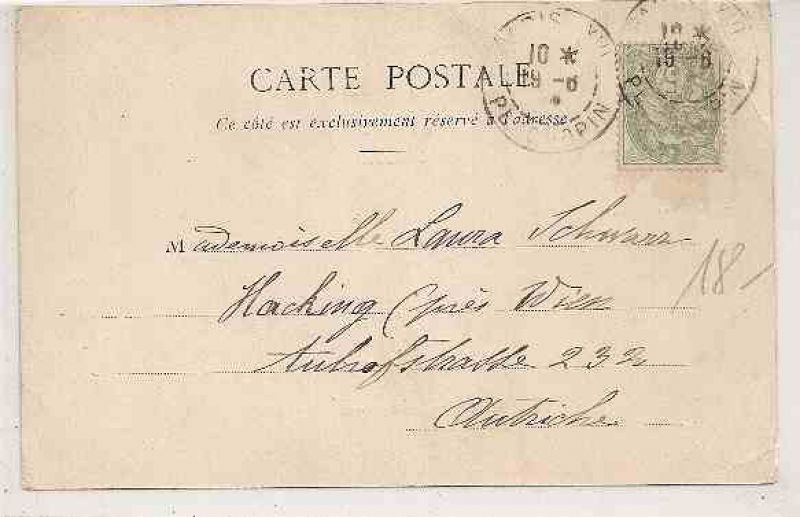 CARTE POSTALE
Ce côté est exclusivement réservé à l'adresse
PARIS XVII
10 *
19 - 6
Mademoiselle Laura Schwarz
Hacking (près Wien
18/
Auhofstrasse 232
Autriche